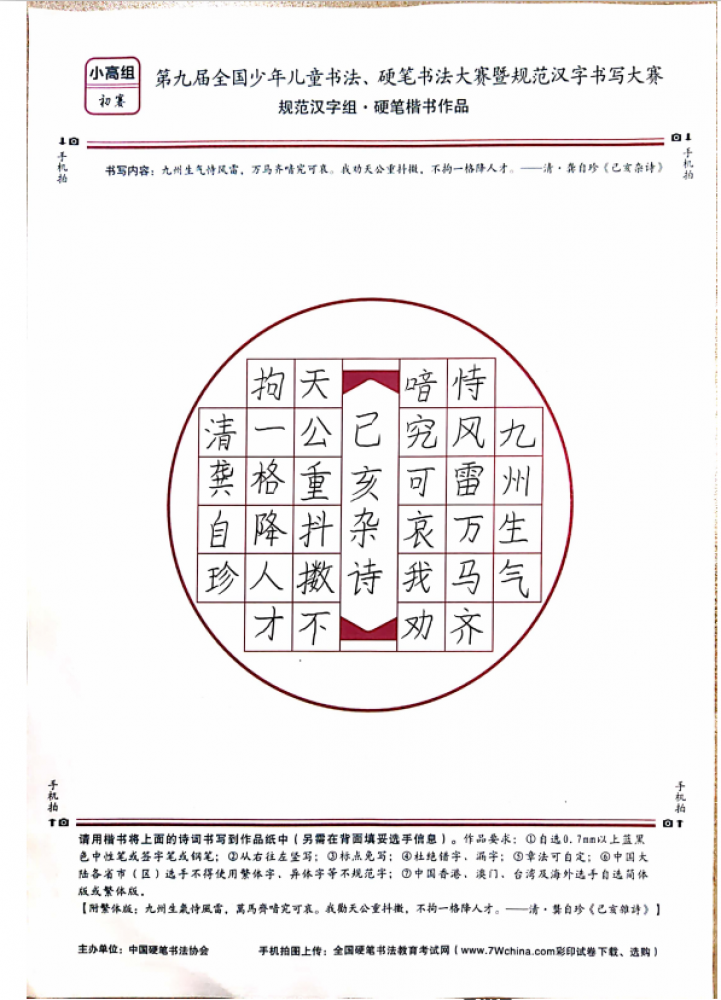 小高组
初赛
第九届全国少年儿童书法、硬笔书法大赛暨规范汉字书写大赛
规范汉字组·硬笔楷书作品
手机拍
手机拍
书写内容：九州生气恃风雷，万马齐喑究可哀。我劝天公重抖擞，不拘一格降人才。——清·龚自珍《己亥杂诗》
九州生气
恃风雷万马齐
喑究可哀我劝
已亥杂诗
天公重抖擞不
拘一格降人才
清龚自珍
手机拍
手机拍
请用楷书将上面的诗词书写到作品纸中（另需在背面填妥选手信息）。作品要求：①自选0.7mm以上蓝黑
色中性笔或签字笔或钢笔；②从右往左竖写；③标点免写；④杜绝错字、漏字；⑤章法可自定；⑥中国大
陆各省市（区）选手不得使用繁体字、异体字等不规范字；⑦中国香港、澳门、台湾及海外选手自选简体
版或繁体版。
【附繁体版：九州生氣恃風雷，萬馬齊喑究可哀。我勸天公重抖擻，不拘一格降人才。——清·龔自珍《己亥雜詩》】
主办单位：中国硬笔书法协会 手机拍图上传：全国硬笔书法教育考试网（www.7Wchina.com彩印试卷下载、选购）